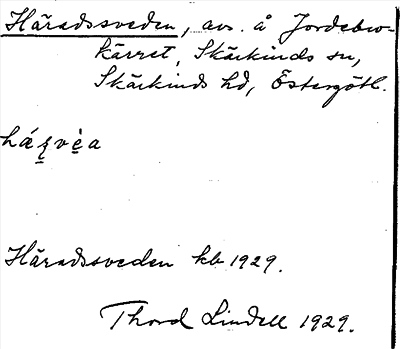 Häradssveden, avs. å Jordebro-
kärret, Skärkinds sn,
Skärkinds hd, Östergötl.
Häradssveden kb 1929.
Thord Lindell 1929.